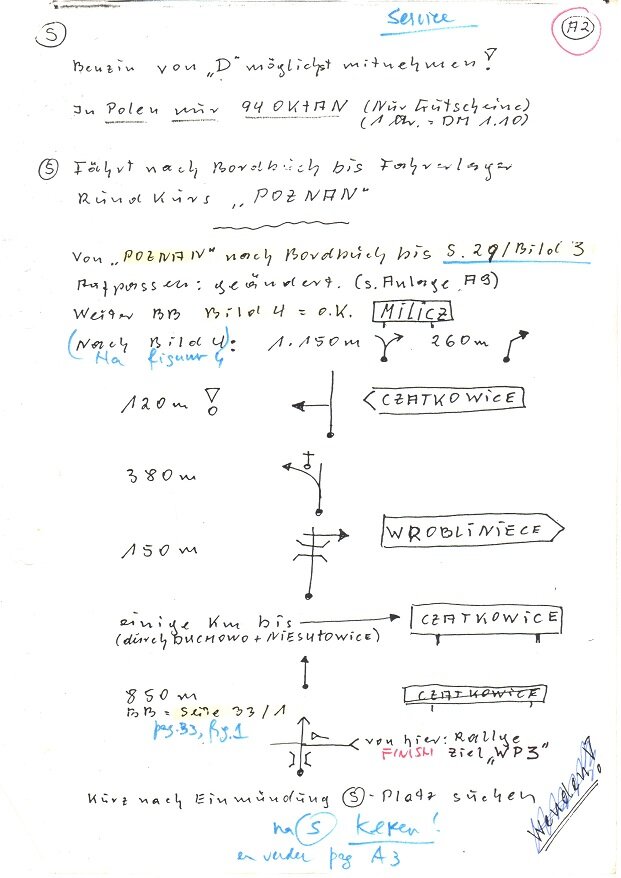 Service
S
A2
Benzin von „D" möglichst mitnehmen!
In Polen nur 94 OKTAN (Nur Gutscheine)
(1 Ltr. = DM 1.10)
S Fährt nach Bordbuch bis Fahrerlager
Rundkurs „POZNAN"
Von „POZNAN" nach Bordbuch bis S. 29/Bild 3
Aufpassen: geändert. (s. Anlage A9)
Weiter BB Bild 4 = o.K. Milicz
(Nach Bild 4): 1.150m 260m
Na figuur 4
120m ! CZATKOWICE
380m
150m WROBLINIECE
einige Km bis CZATKOWICE
(durch DUCHOWO + NIESUTOWICE)
850m CZATKOWICE
BB = Seite 33/1
pag. 33, fig. 1
von hier: Rallye
FINISH Ziel „WP3"
Kurz nach Einmündung S-Platz suchen
na S Keren!
en verder pag A3